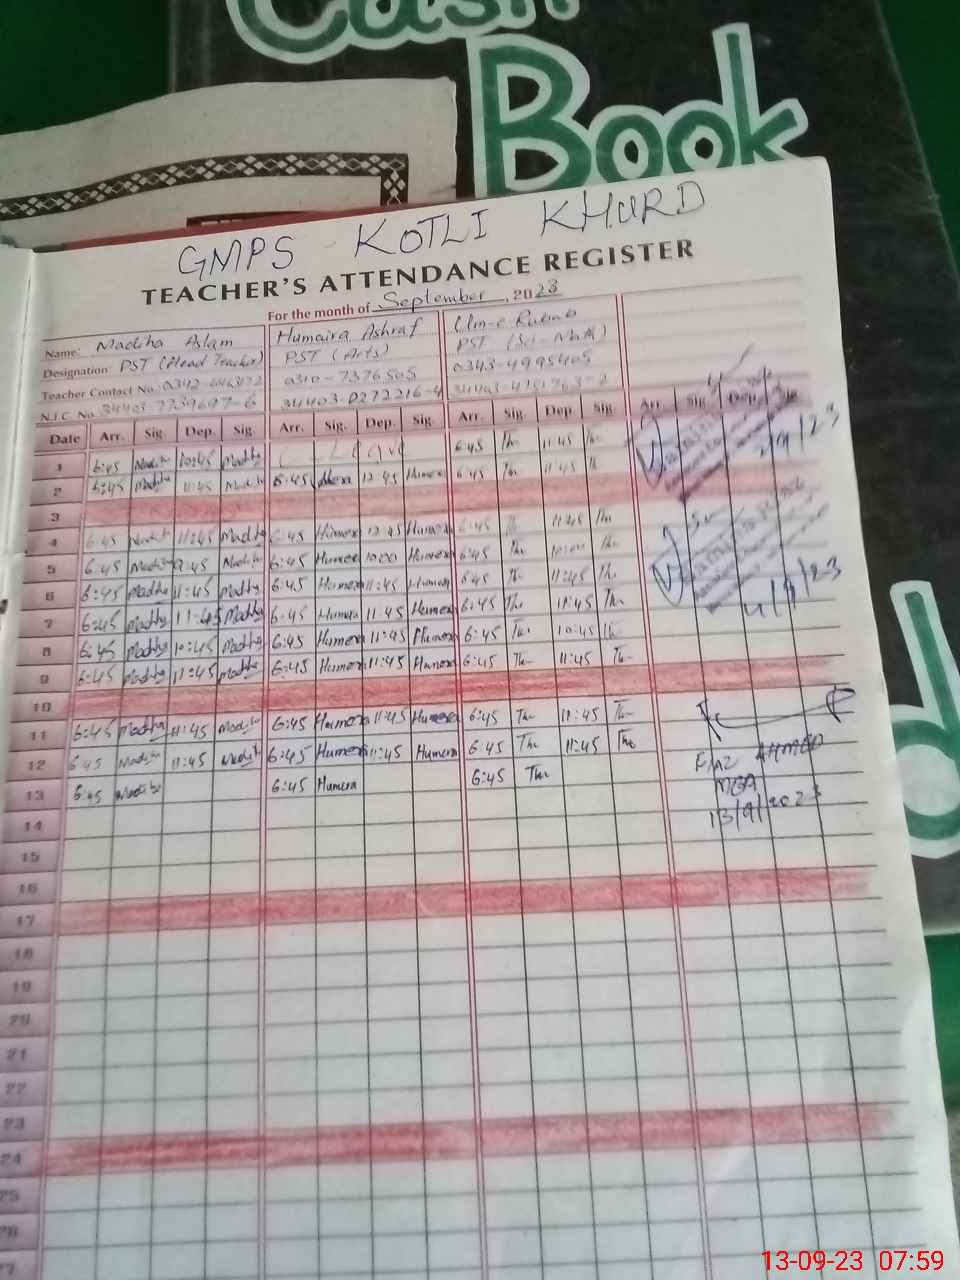 Cash
Book
GMPS KOTLI KHURD
TEACHER'S ATTENDANCE REGISTER
For the month of September, 2023
Name: Madiha Aslam Humaira Ashraf
Designation: PST (Head Teacher) PST (Arts) PST (Sci-Math)
Teacher Contact No. 0310-7376505 0343-4995405
N.I.C. No.
Date Arr. Sig. Dep. Sig. Arr. Sig. Dep. Sig. Arr. Sig. Dep. Sig. Arr. Sig. Dep.
1 6:45 Madiha 10:45 Madiha Leave 6:45 11:45
2 6:45 Madiha 11:45 Madiha 6:45 Humera 12:45 Humera 6:45 11:45
2/9/23
3
4 6:45 Madiha 11:45 Madiha 6:45 Humera 12:45 Humera 6:45 11:45
5 6:45 Madiha Madiha 6:45 Humera 10:00 Humera 6:45
6 6:45 Madiha 11:45 Madiha 6:45 Humera 11:45 Humera 6:45 11:45
4/9/23
7 6:45 Madiha 11:45 Madiha 6:45 Humera 11:45 Humera 6:45 11:45
8 6:45 Madiha 10:45 Madiha 6:45 Humera 11:45 Humera 6:45 10:45
9 6:45 Madiha 11:45 Madiha 6:45 Humera 11:45 Humera 6:45 11:45
10
11 6:45 Madiha 11:45 Madiha 6:45 Humera 11:45 Humera 6:45 11:45
12 6:45 Madiha 11:45 Madiha 6:45 Humera 11:45 Humera 6:45 11:45
AHMED
13 6:45 Madiha 6:45 Humera 6:45
MEA
13/9/2023
14
15
16
17
18
19
20
21
22
23
24
25
26
27
13-09-23 07:59